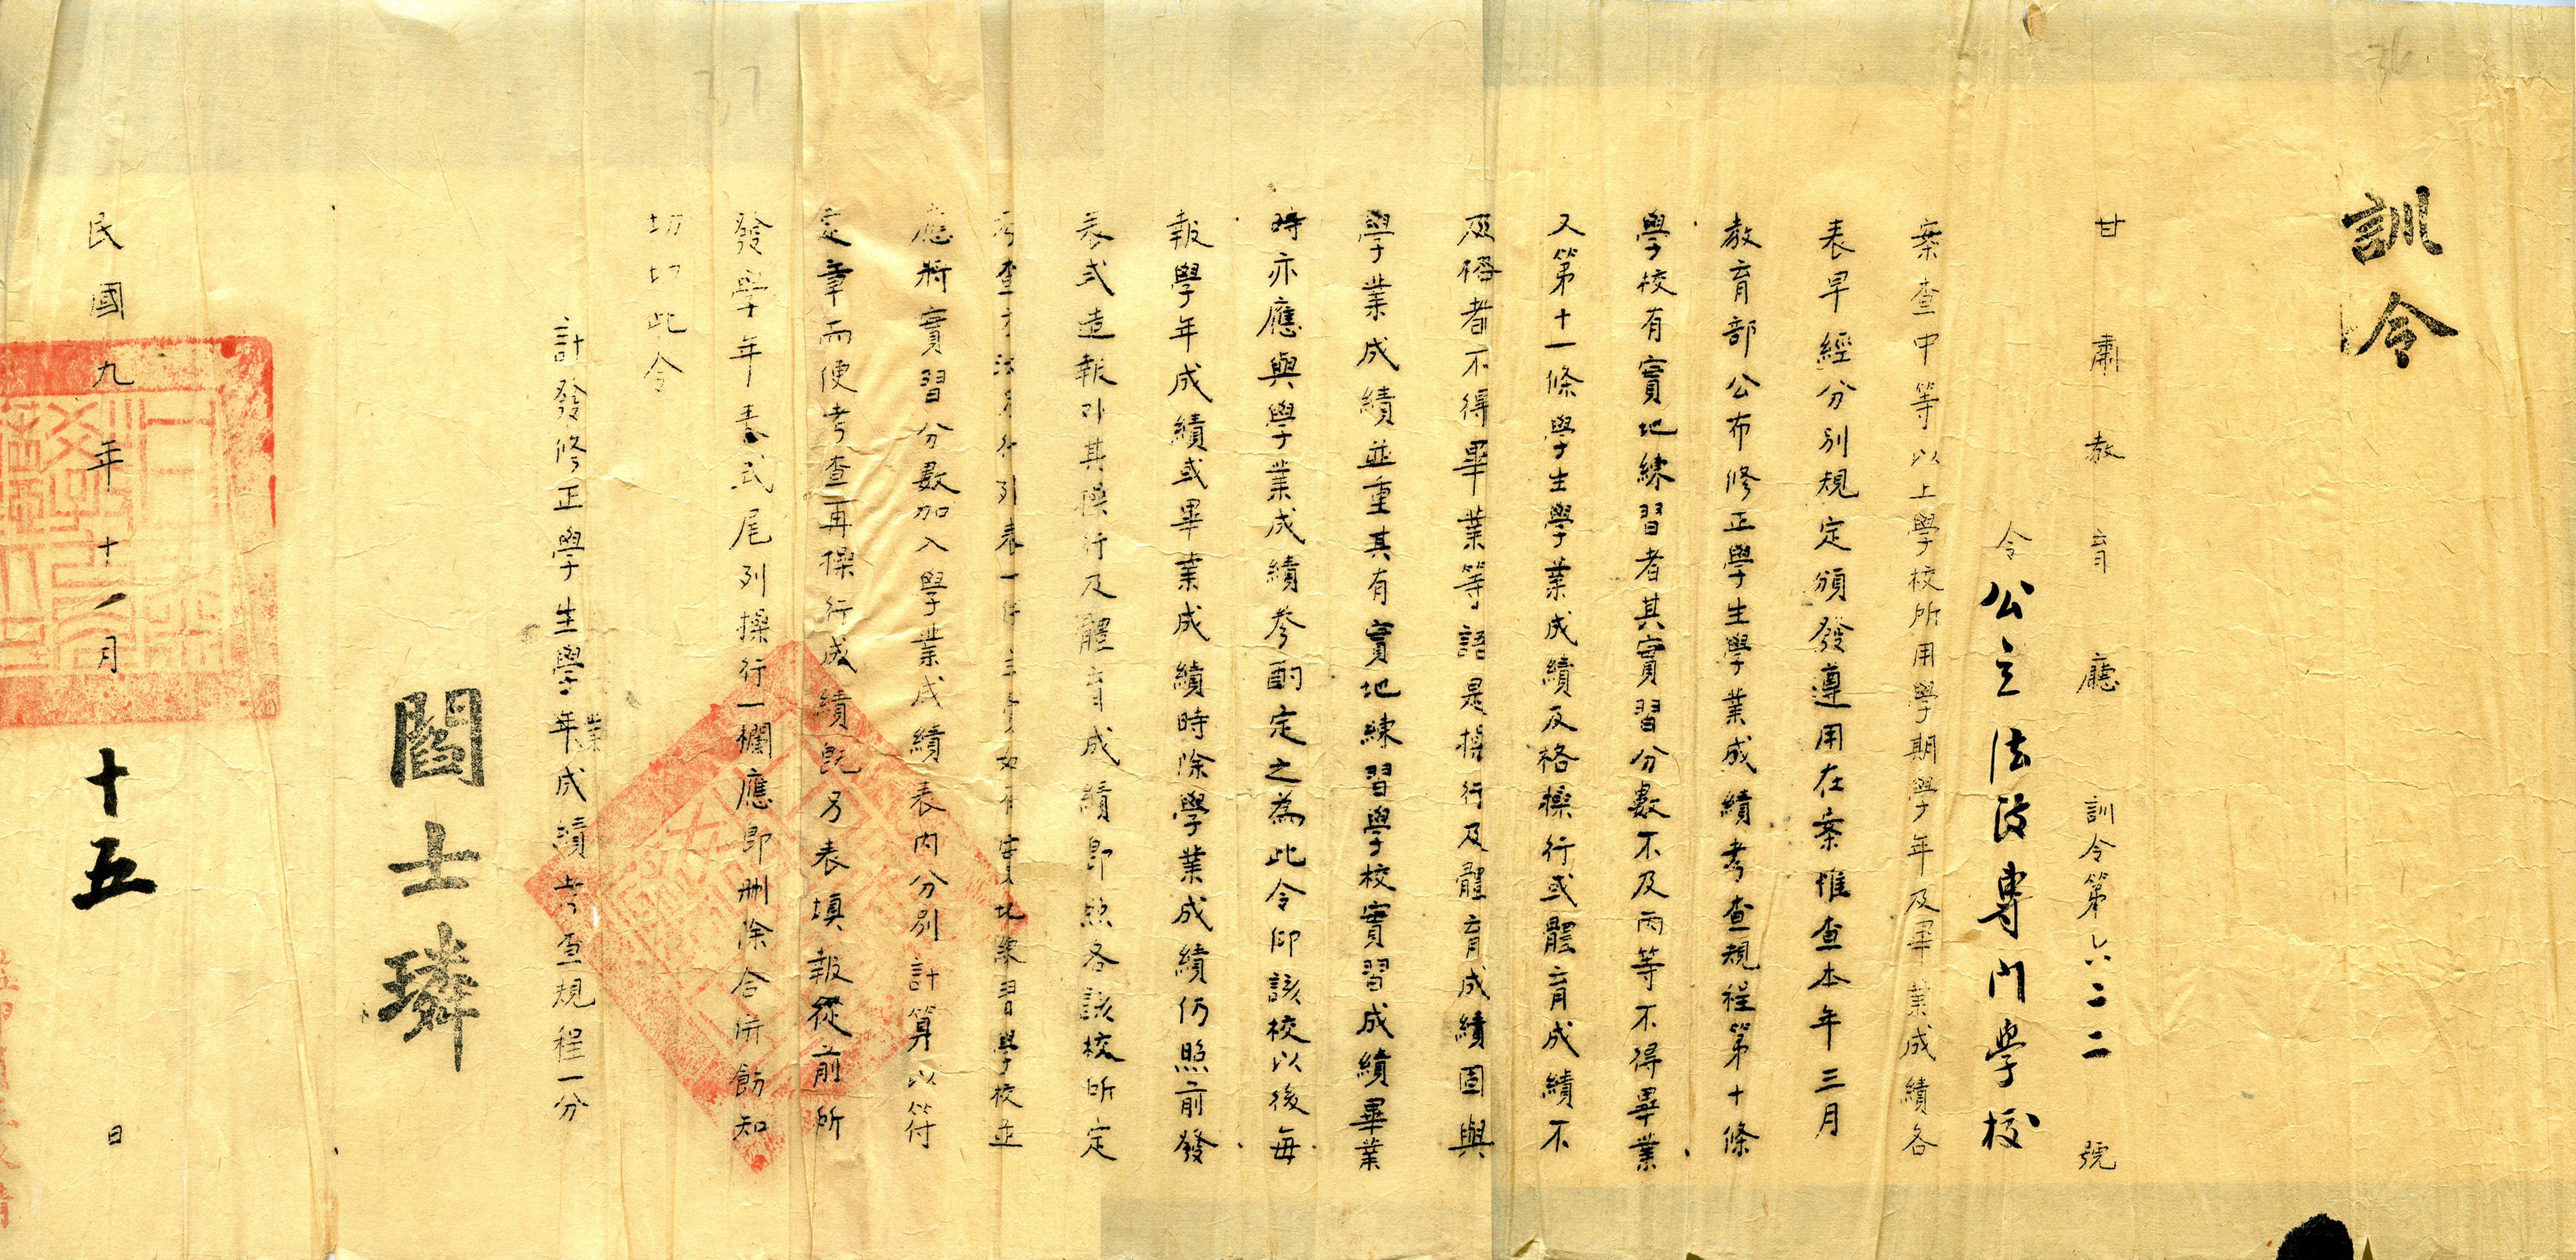 訓令
甘肅教育廳訓令第六二二號
令公立法政專門學校
案查中等以上學校所用學期學年及畢業成績各
表早經分別規定頒發遵用在案惟查本年三月
教育部公布修正學生學業成績考查規程第十條
學校有實地練習者其實習分數不及丙等不得畢業
又第十一條學生學業成績及格操行或體育成績不
及格者不得畢業等語是操行及體育成績固與
學業成績並重其有實地練習學校實習成績畢業
時亦應與學業成績參酌定之為此令仰該校以後每
報學年成績或畢業成績時除學業成績仍照前發
表式造報外其操行及體育成績即照各該校所定
考查方法另行列表一併呈實地練習學校並
應將實習分數加入學業成績表內分別計算以符
定章而便考查再操行成績既另表填報從前所
發學年表式尾列操行一欄應即刪除合併飭知
切切此令
計發修正學生學業年成績考查規程一分
閻士璘
民國九年十一月十五日